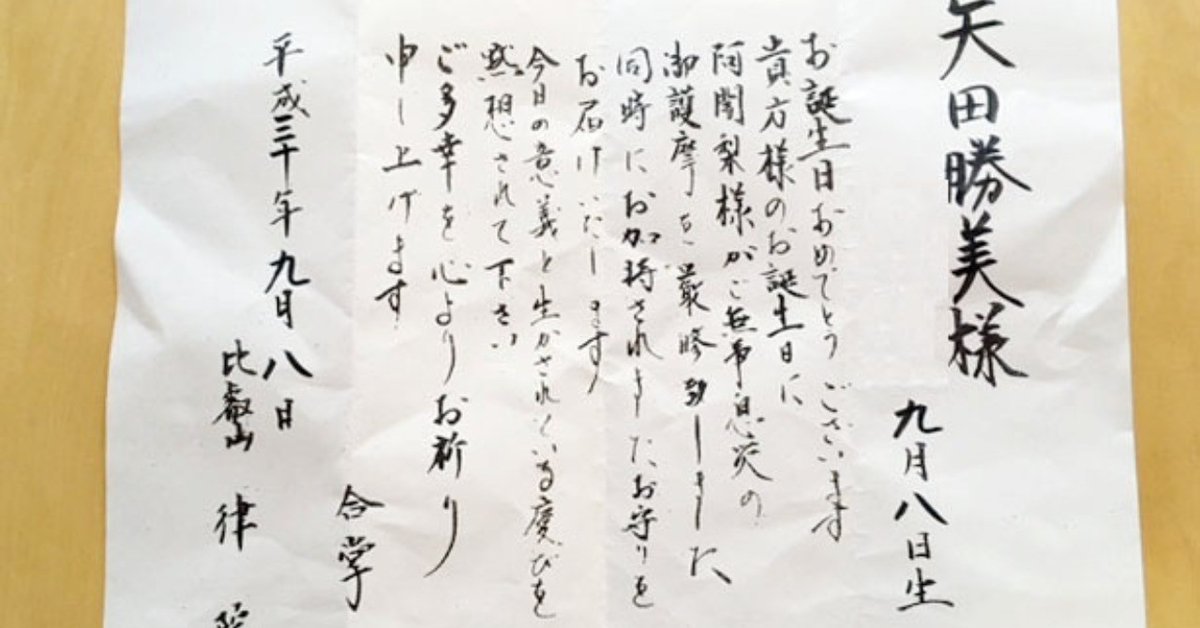 矢田勝美様
九月八日生
お誕生日おめでとうございます
貴方様のお誕生日に
阿闍梨様がご無事息災の
御護摩を厳修致しました
同時にお加持されましたお守りを
お届けいたします
今日の意義と生かされている慶びを
黙想されて下さい
ご多幸を心よりお祈り
申し上げます
合掌
平成三十年九月八日
比叡山 律